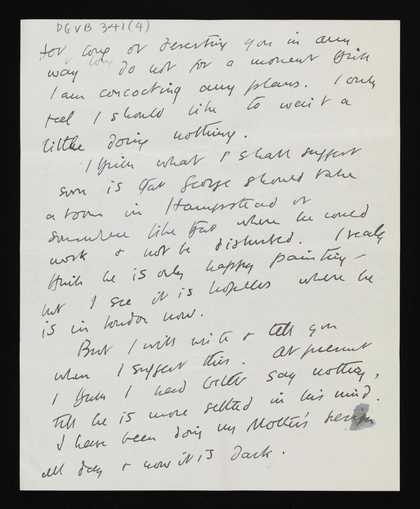 DGVB 341(4)
for long or deserting you in any
way do not for a moment think
I am concocting any plans. I only
feel I should like to wait a
little doing nothing.
I think what I shall suggest
soon is that George should take
a room in Hampstead or
somewhere like that where he could
work & not be disturbed. I really
think he is only happy painting –
but I see it is hopeless where he
is in London now.
But I will write & tell you
when I suggest this. At present
I think I had better say nothing,
till he is more settled in his mind.
I have been doing my Mother's
all day & now it is dark.